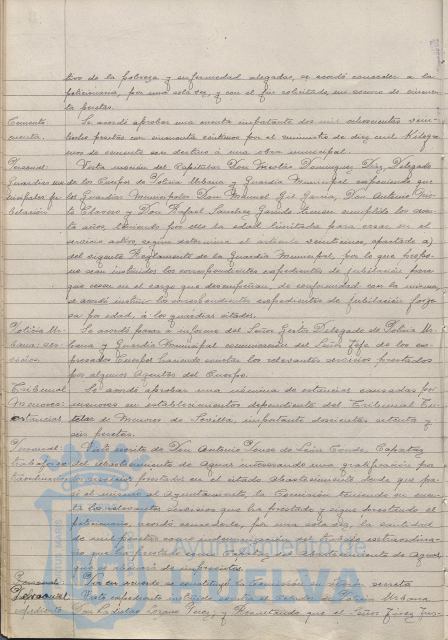 tivo de la pobreza y enfermedad alegadas, se acordó conceder a la
peticionaria, por una sola vez, y con el fin solicitado, un socorro de cincuen-
ta pesetas.
Cemento Se acordó aprobar una cuenta importante dos mil ochocientas vein-
cuenta. pesetas con cincuenta céntimos por el suministro de diez mil Kilogra-
mos de cemento con destino a una obra municipal.
Personal: Vista moción del Capitular Don Nicolás Dominguez Diaz, Delegado
Guardias mu- de los Cuerpos de Policía Urbana y Guardia Municipal exponiendo que
nicipales ju- los Guardias Municipales Don Manuel Gil Garcia, Don Antonio
bilación y Don Rafael Sanchez Garrido tienen cumplido los
ta años, teniendo por ello la edad limitada para cesar en el
servicio activo, según determina el artículo veintinueve, apartado a)
del vigente Reglamento de la Guardia Municipal, por lo que propo-
ne sean instruidos los correspondientes expedientes de jubilación para
que cesen en el cargo que desempeñan, de conformidad con la misma,
se acordó instruir los correspondientes expedientes de jubilación forzo-
sa por edad, a los guardias citados.
Policía Ur- Se acordó pasar a informe del Señor Gestor Delegado de Policía Ur-
bana: ser- bana y Guardia Municipal comunicación del Señor Jefe de los ex-
presados Cuerpos haciendo constar los relevantes servicios prestados
por algunos Agentes del Cuerpo.
Tribunal Se acordó aprobar una nómina de estancias causadas por
Menores: menores en establecimientos dependientes del Tribunal Tu-
estancias telar de Menores de Sevilla, importante doscientas setenta y
seis pesetas.
Personal: Visto escrito de Don Antonio Ponce de León Conde, Capataz
trabajos del abastecimiento de Aguas interesando una gratificación por
servicios prestados en el citado abastecimiento desde que pa-
só el mismo al Ayuntamiento, la Comisión teniendo en cuen-
ta los relevantes servicios que ha prestado y sigue prestando el
peticionario, acordó concederle, por una sola vez, la cantidad
de mil pesetas como indemnización del trabajo extraordina-
rio que ha prestado como Capataz del Abastecimiento de Aguas
que se abonará de imprevistos.
Personal: Por un acuerdo se constituyó la Comisión en sesión secreta
Personal: Visto expediente instruido contra el Celador de Policía Urbana
expediente Don Ladislao Lozano Perez y Resultando que el Señor Juez Ins-
Ayuntamiento de
HUELVA